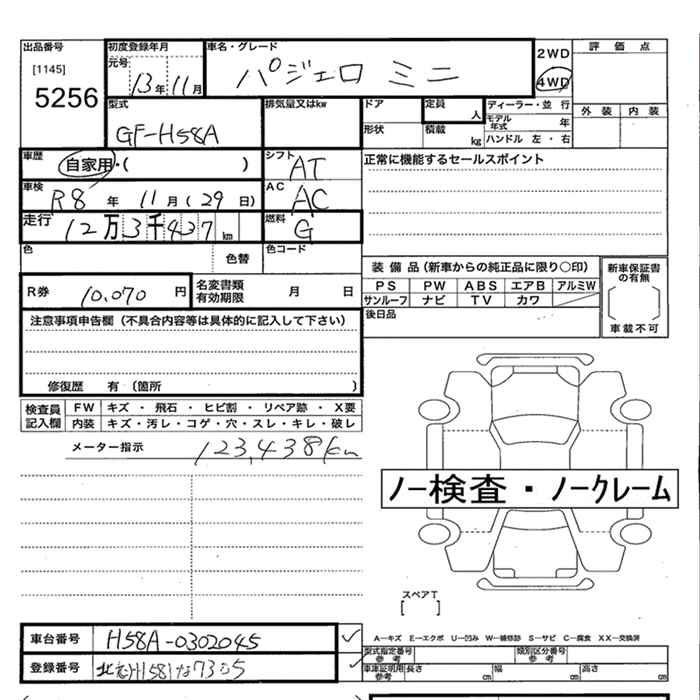 出品番号
[1145]
5256
初度登録年月
元号
13年 11月
車名・グレード
パジェロ ミニ
2WD
4WD
評価点
外装 内装
型式
GF-H58A
排気量又はkw
ドア
形状
定員 人
積載 kg
ディーラー・並行
モデル年式 年
ハンドル 左・右
車歴
自家用・( )
シフト
AT
正常に機能するセールスポイント
車検
R8 年 11 月 ( 29 日)
AC
AC
走行
12万3千437 km
燃料
G
色
色替
色コード
装備品(新車からの純正品に限り○印)
PS PW ABS エアB アルミW
サンルーフ ナビ TV カワ
新車保証書の有無
車載不可
R券 10,070 円
名変書類有効期限 月 日
後日品
注意事項申告欄(不具合内容等は具体的に記入して下さい)
修復歴 有 (箇所 )
検査員記入欄
FW キズ・飛石・ヒビ割・リペア跡・X要
内装 キズ・汚レ・コゲ・穴・スレ・キレ・破レ
メーター指示 123,438km
ノー検査・ノークレーム
スペアT
[ ]
車台番号 H58A-0302045
登録番号
A−キズ E−エクボ U−凹み W−補修跡 S−サビ C−腐食 XX−交換済
型式指定番号
参考
類別区分番号
参考
車庫証明用
参考
長さ cm 幅 cm 高さ cm